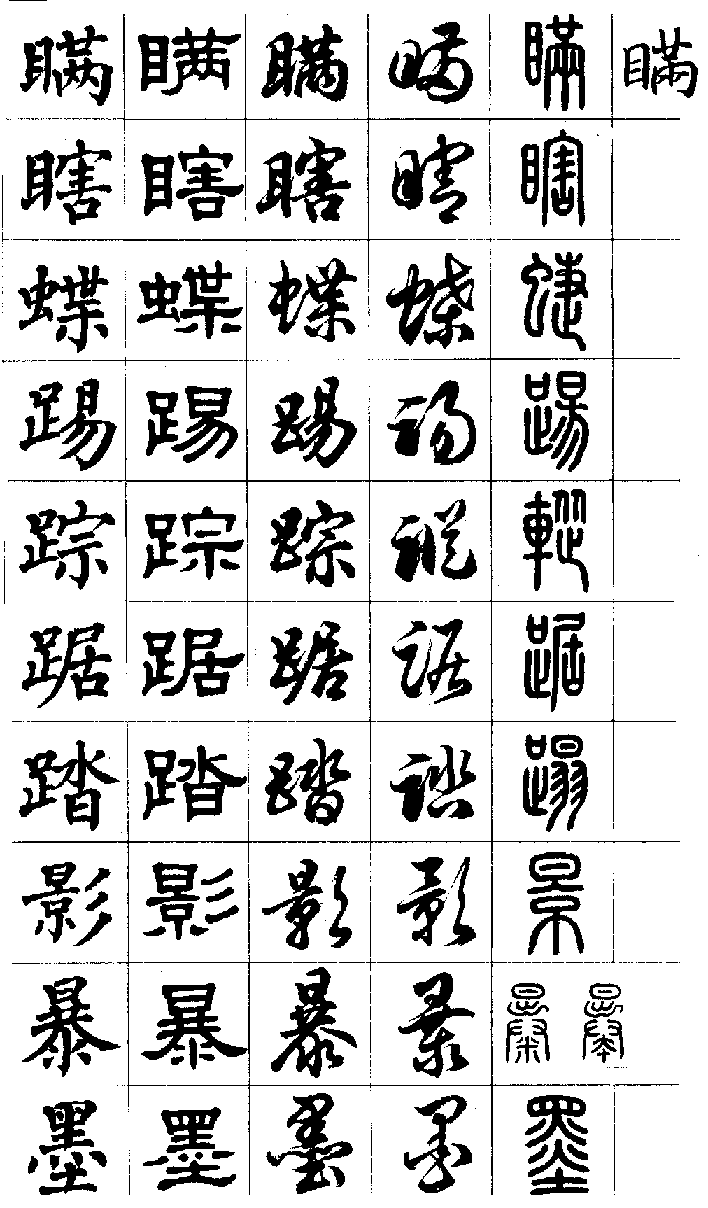 瞒 瞒 瞒 瞒 瞞 瞞
瞎 瞎 瞎 瞎 瞎
蝶 蝶 蝶 蝶
踢 踢 踢 踢 踢
踪 踪 踪 踪
踞 踞 踞 踞 踞
踏 踏 踏 踏 蹋
影 影 影 影 景
暴 暴 暴 暴
墨 墨 墨 墨 墨